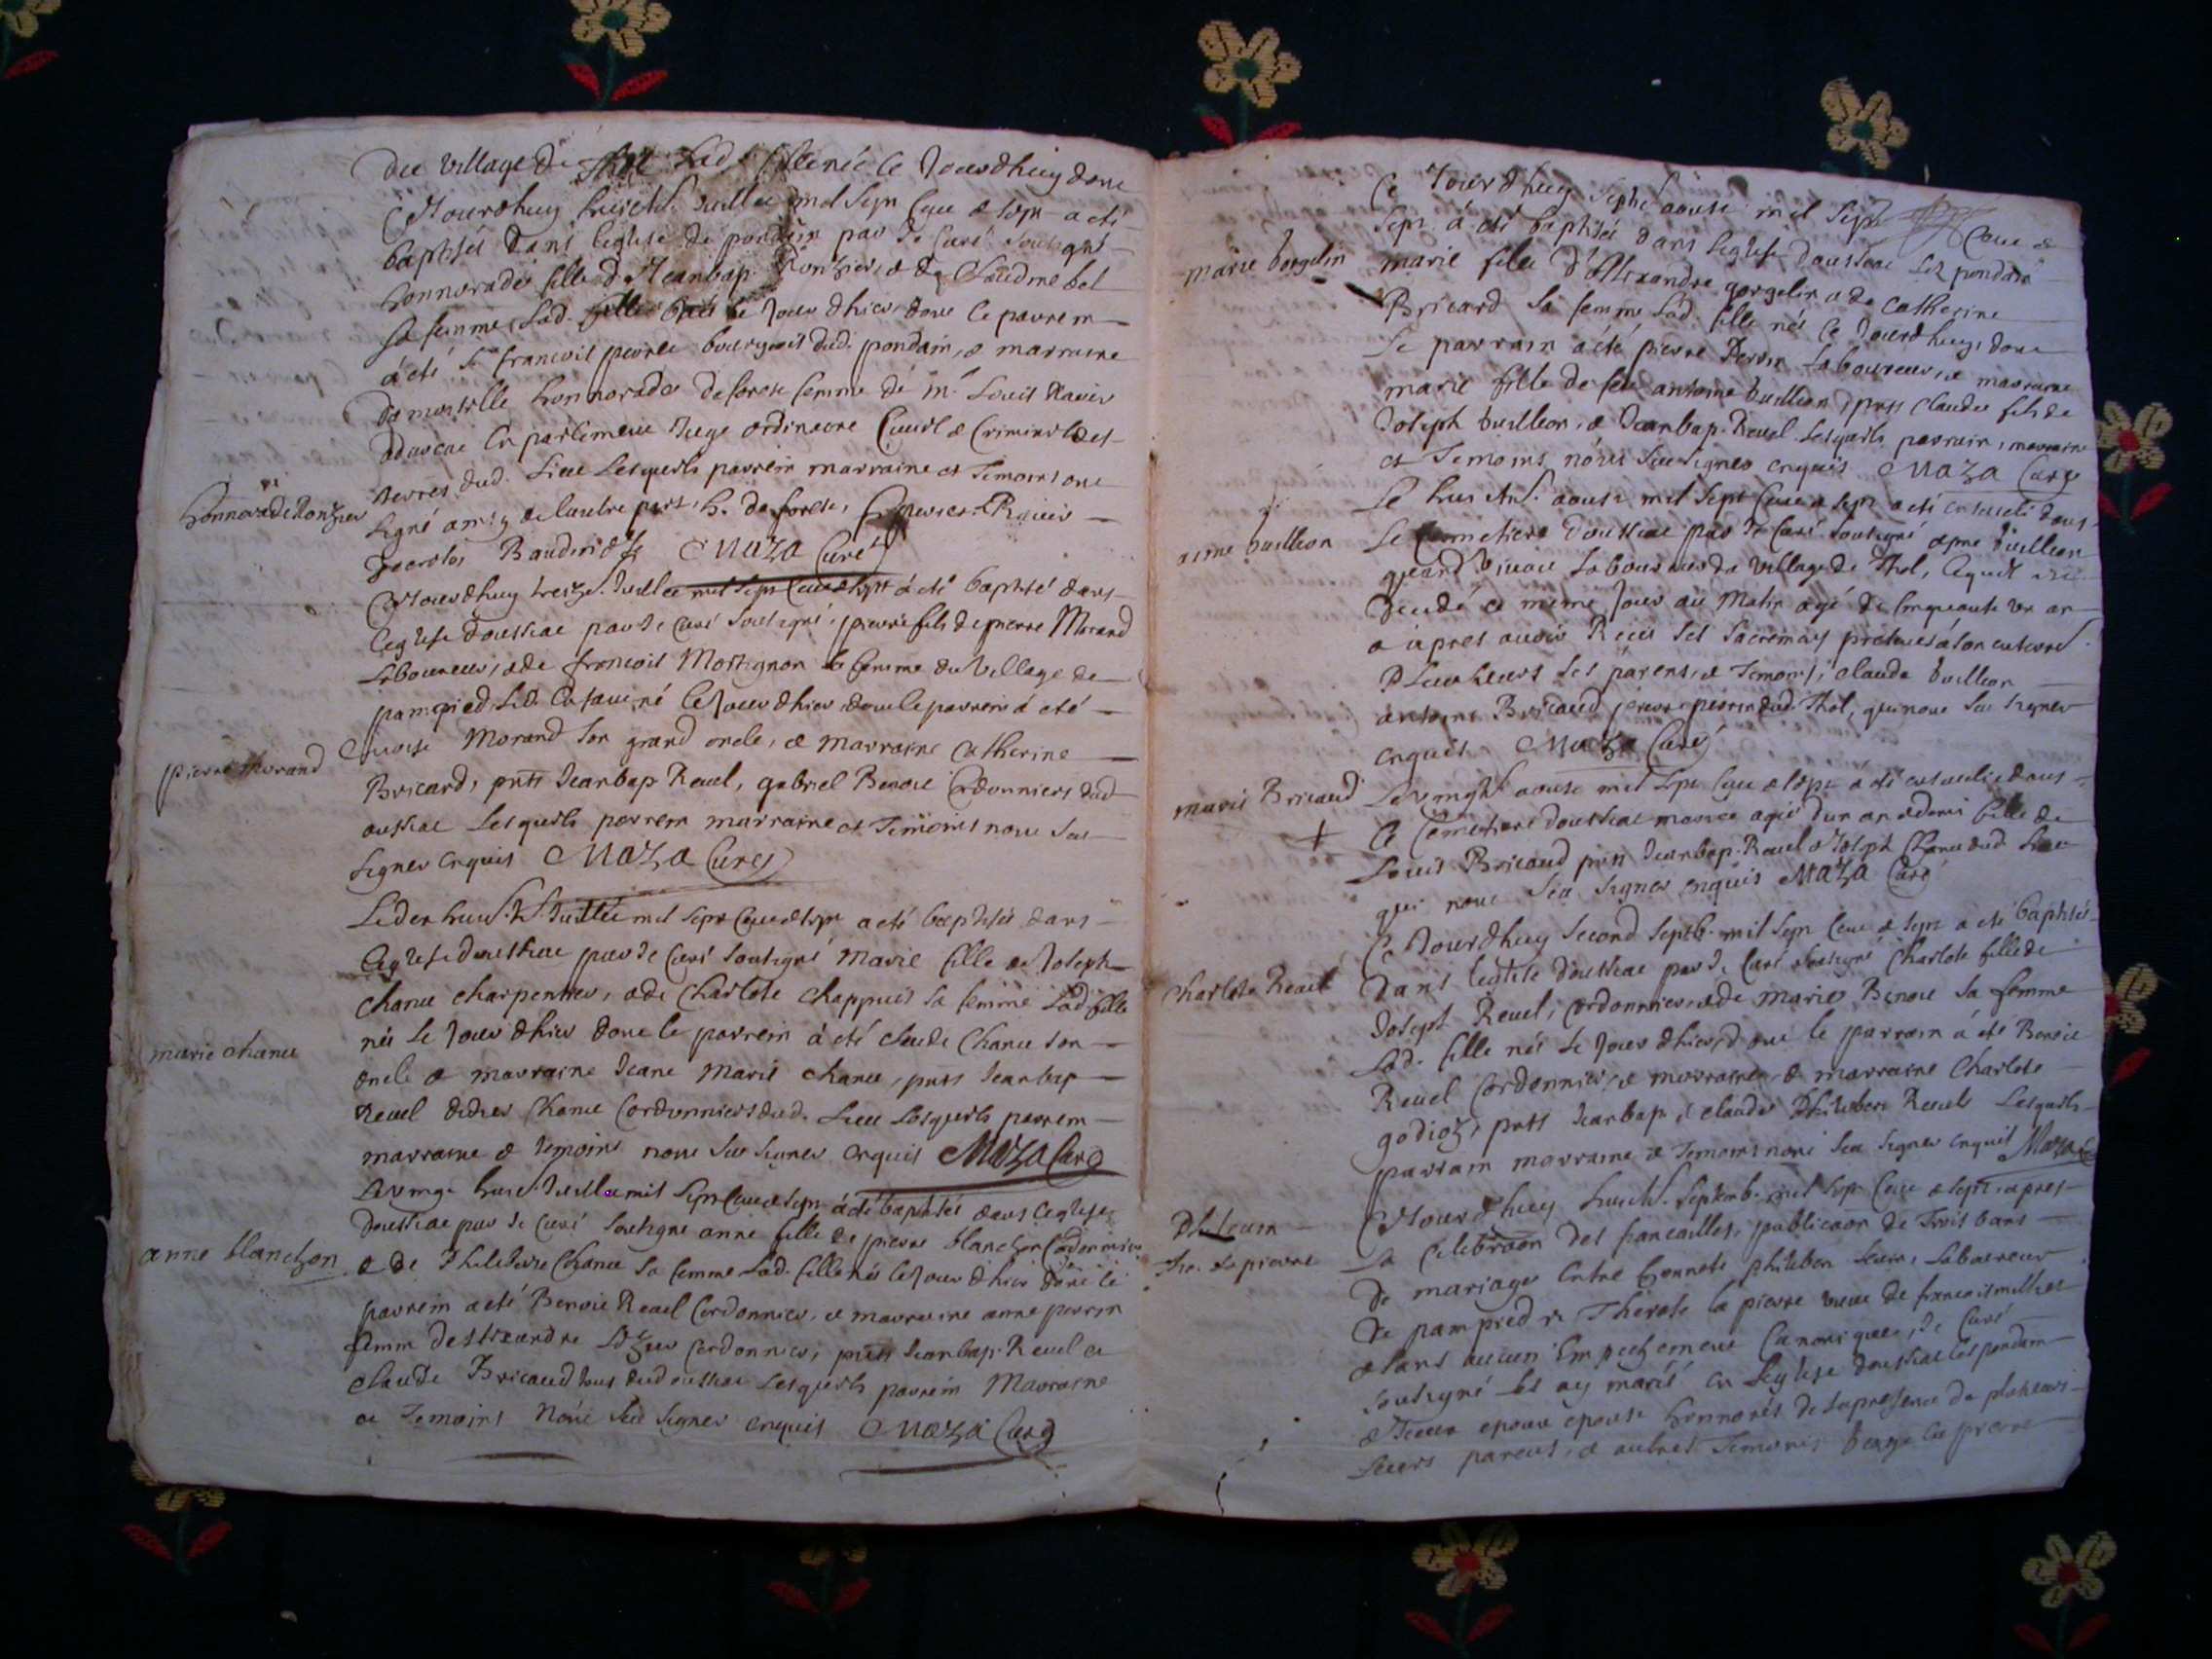 du village de Thol Lad. fille née ce Jourdhuy dont
Ce Jourdhuy huict. Juillet mil sept cent & sept a eté
baptisée dans leglise de pondain par Je Curé soubsigné
honnorade fille de Jeanbap. Rontzier & de
sa femme, Lad. fille née le Jour dhier, dont le parrein
a eté Sr francois bourgeois dud. pondain, & marraine
damoiselle honnorade deforest femme de mr. Louis Ravier
aduocat en parlement Juge ordinaire Ciuil & Criminel des
terres dud. Lieu Lesquels parrein marraine et Temoins ont
signé h. de forest, Ravier
Baudin MAZA Curé
honnorade Rontzier
Ce Jourdhuy treize Juillet mil sept cent & sept a eté baptisé dans
leglise doussiat par Je Curé soubsigné, pierre fils de pierre Morand
Laboureur, & de francois Mortignon sa femme du village de
pampied, Led. Enfant né le Jour dhier, dont le parrein a eté
Morand son grand oncle, & marraine Catherine
pierre Morand
Bricard, pnts Jeanbap Reuel, gabriel Benoit Cordonniers dud
oussiat Lesquels parrein marraine et Temoins nont sceu
signer enquis MAZA Curé
Le dix huict Juillet mil sept cent & sept a eté baptisée dans
leglise doussiat par Je Curé soubsigné Marie fille de Joseph
Chanu charpentier, & de Charlote Chappuis sa femme Lad fille
née Le Jour dhier dont le parrein a eté claude Chanu son
marie chanu
oncle & marraine Jeane Marie chanu, pnts Jeanbap
Reuel didier Chanu Cordonniers dud. Lieu Lesquels parrein
marraine & temoins nont sceu signer enquis MAZA Curé
Le vingt huict Juillet mil sept cent & sept a eté baptisée dans leglise
doussiat par Je Curé soubsigné anne fille de pierre blanchon Cordonnier
anne blanchon
& de Philiberte Chanu sa femme Lad. fille née le Jour dhier dont le
parrein a eté Benoit Reuel Cordonnier, & marraine anne perrin
femme dalexandre Cordonnier, pnts Jeanbap. Reuel et
claude Bricaud tous dud oussiat Lesquels parrein Marraine
et Temoins nont sceu signer enquis MAZA Curé
Ce Jourdhuy septe aoust mil sept cent &
sept a eté baptisée dans leglise doussiat Lez pondain
marie gorgelin
marie fille d'Alexandre gorgelin & de Catherine
Bricard sa femme Lad. fille née ce Jourdhuy, dont
Le parrain a été pierre Perrin Laboureur, & marraine
marie fille de feu antoine buillion, pnts claude fils de
Joseph buillion, & Jeanbap. Reuel Lesquels parrain, marraine
et Temoins nont sceu signer enquis MAZA Curé
Le huict. aoust mil sept cent & sept a eté enseueli dans
aime buillion
Le Cemetiere doussiat par Je Curé soubsigné aime buillion
quand viuoit Laboureur du village de Thol, lequel est
decedé ce meme Jour au Matin agé de cinquante un an
& apres auoir Receu ses sacremens presents a son enterre
Plusieurs ses parens, & Temoins, claude buillion
antoine Bricaud, pierre perrin dud. Thol, qui nont sceu signer
enquis MAZA Curé
marie Bricaud
Le vingt aoust mil sept cent & sept a eté enseuelie dans
+
le Cemetiere doussiat marie agée dun an & demi fille de
Louis Bricaud pnts Jeanbap. Reuel & Joseph Chanu dud Lieu
qui nont sceu signer enquis MAZA Curé
Ce Jourdhuy second Septb. mil sept cent & sept a eté baptisée
charlote Reuel
dans leglise doussiat par Je Curé soubsigné Charlote fille de
Joseph Reuel, Cordonnier, & de marie Benoit sa femme
Lad. fille née Le Jour dhier, dont le parrain a été Benoit
Reuel Cordonnier, & marraine & marraine Charlote
godioz, pnts Jeanbap. & claude Philibert Reuel Lesquels
parrain marraine & Temoins nont sceu signer enquis Maza C
Ce Jourdhuy huict. Septemb. mil sept cent & sept apres
La Celebraon des fiancailles, publicaon de Trois bans
The. Lapierre
De mariage entre honnete philibert Laboureur
De pampied & Therese la pierre veuue de francois
& sans aucun Empechement Canonique, Je Curé
soubsigné les ay marié en Leglise doussiat les pondain
& Iceux epoux epouse honnorés de la presence de plusieurs
Leurs parens, & autres Temoins